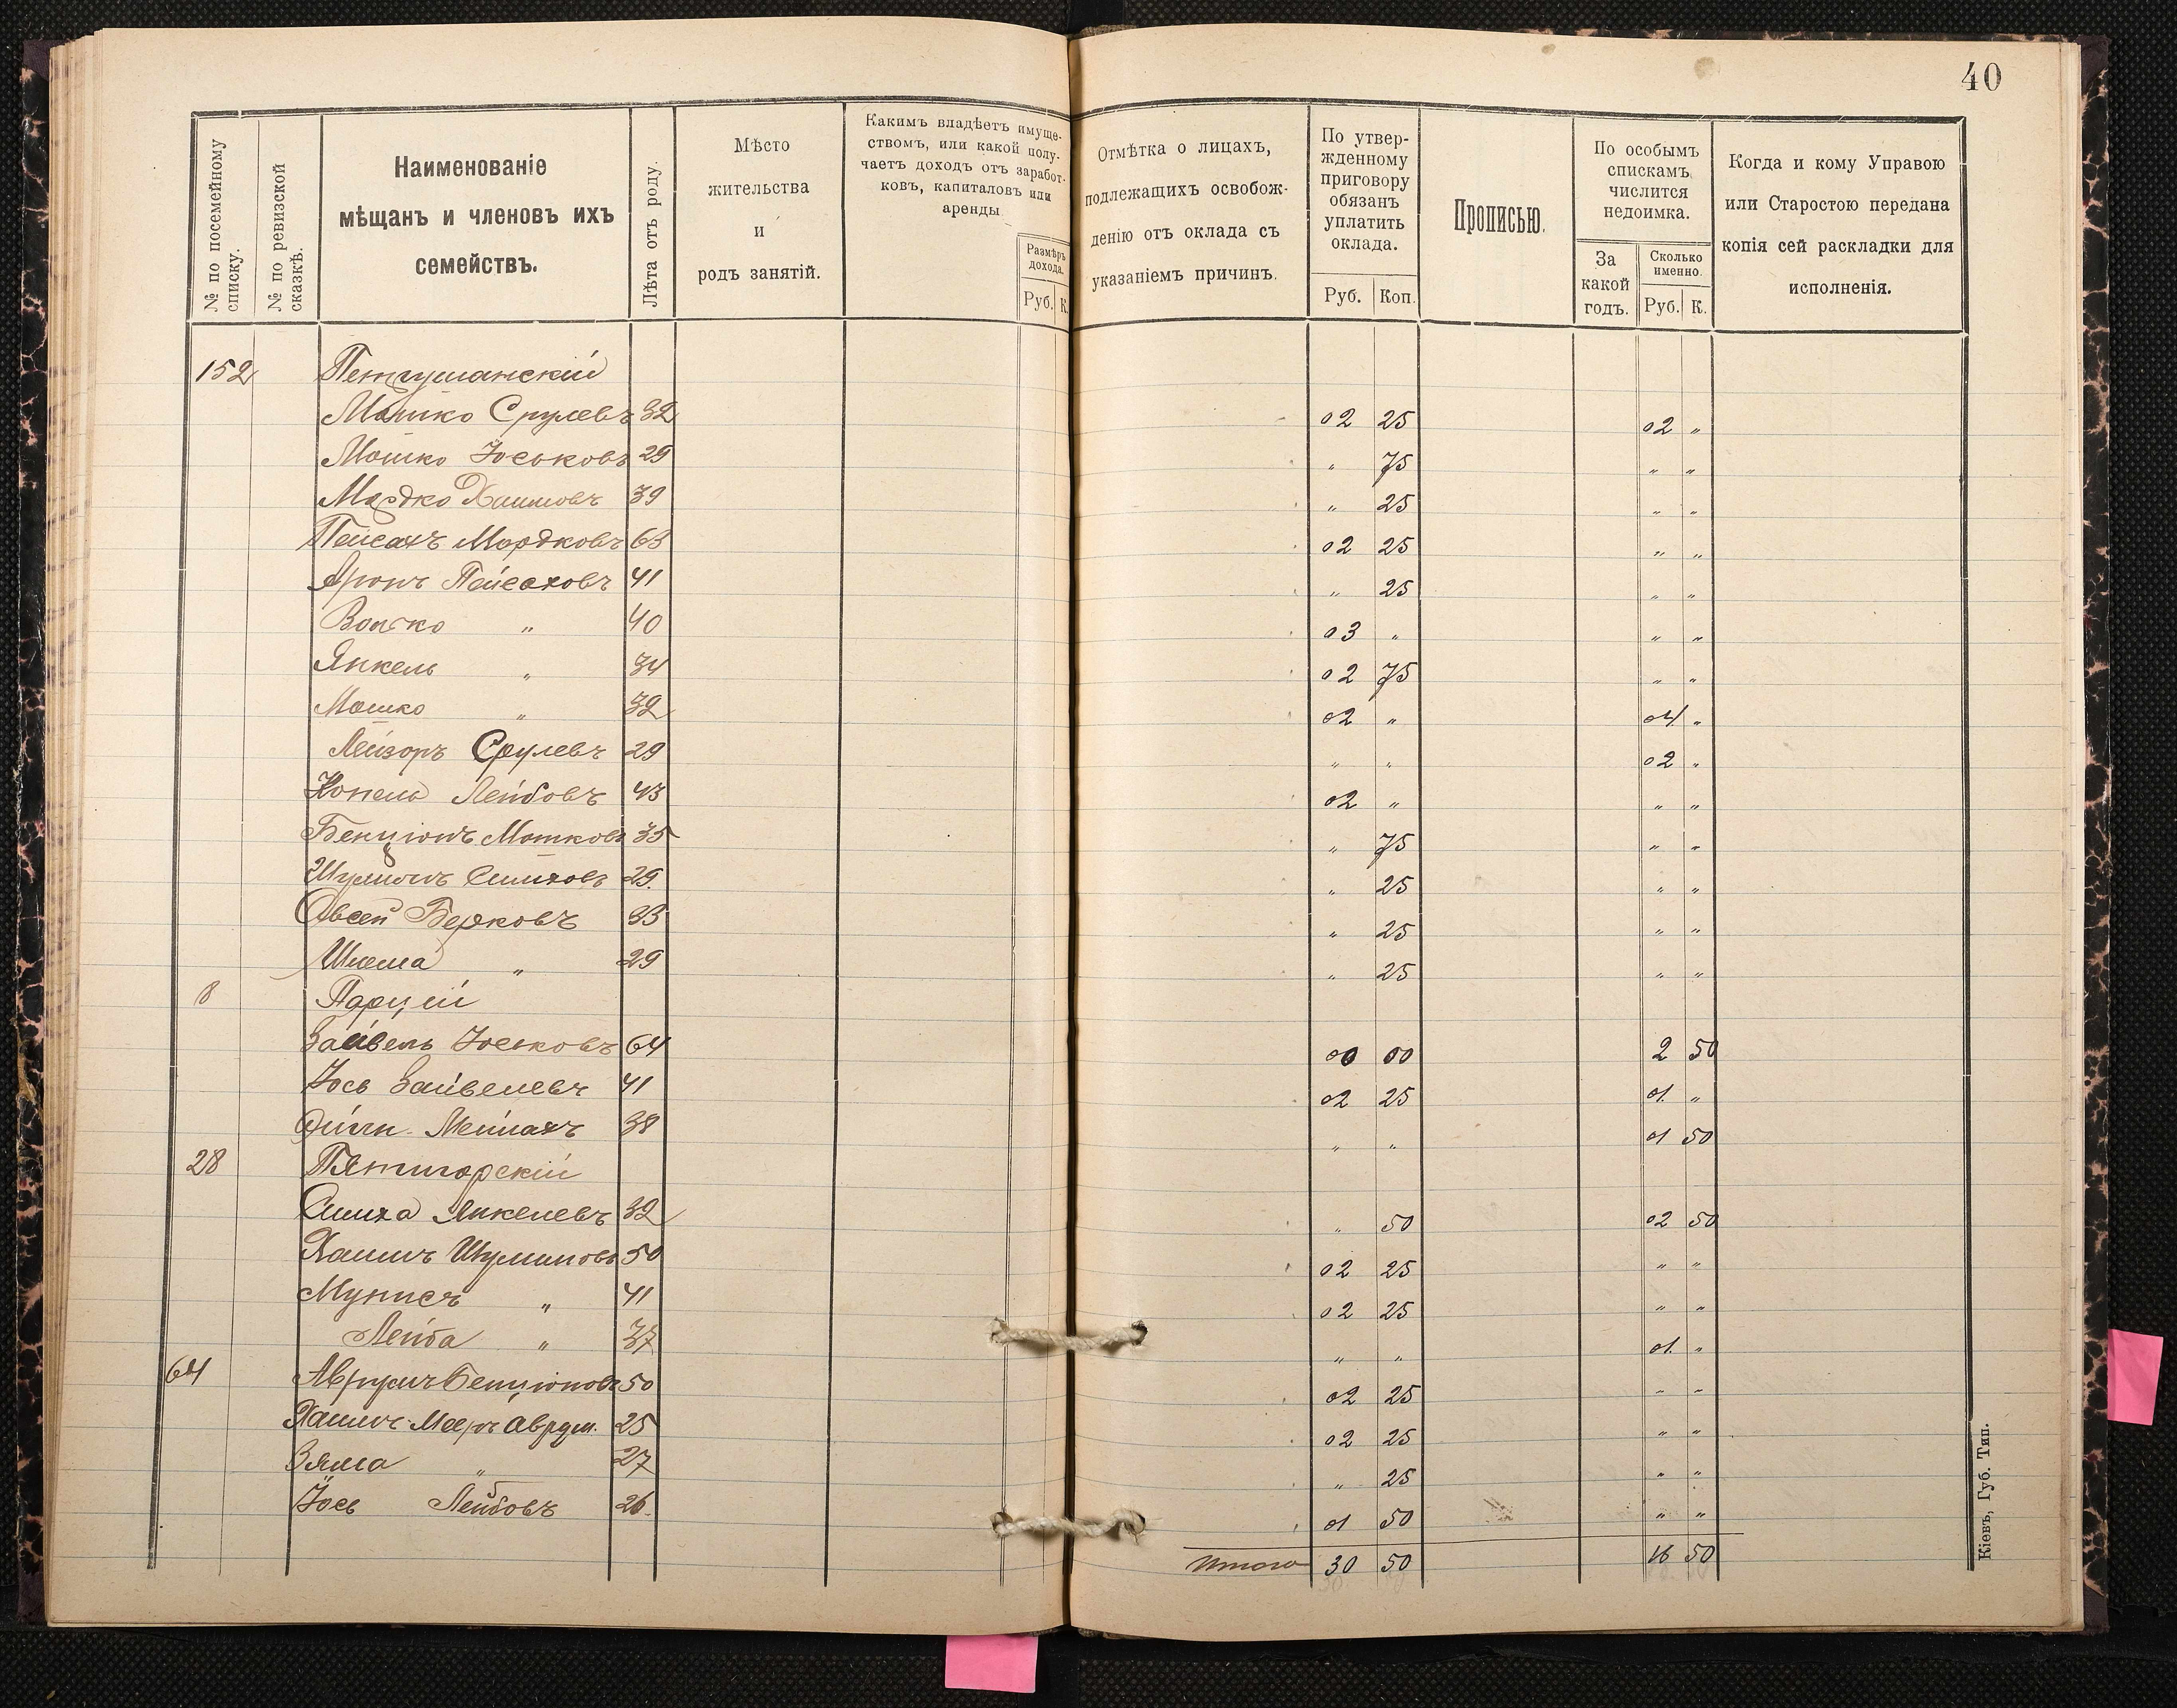 40
№ по посемейному списку.
№ по ревизской сказкѣ.
Наименованіе
мѣщанъ и членовъ ихъ
семействъ.
Лѣта отъ роду.
Мѣсто
жительства
и
родъ занятій.
Какимъ владѣетъ имуще-
ствомъ, или какой полу-
чаетъ доходъ отъ заработ-
ковъ, капиталовъ или
аренды
Размѣръ
дохода.
Руб. К.
Отмѣтка о лицахъ,
подлежащихъ освобож-
денію отъ оклада съ
указаніемъ причинъ.
По утвер-
жденному
приговору
обязанъ
уплатить
оклада.
Руб. Коп.
Прописью.
По особымъ
спискамъ
числится
недоимка.
За
какой
годъ.
Сколько
именно.
Руб. К.
Когда и кому Управою
или Старостою передана
копія сей раскладки для
исполненія.
152 Петрушанскій
Мошко Срулевъ 32 02 25 02 „
Мошко Юськовъ 29 „ 75 „ „
Мордко Хаимовъ 39 „ 25 „ „
Пейсахъ Мордковъ 63 02 25 „ „
Аронъ Пейсаховъ 41 „ 25 „ „
Волько „ 40 03 „ „ „
Янкель „ 34 02 75 „ „
Мошко „ 32 02 „ 04 „
Лейзоръ Срулевъ 29 „ „ 02 „
Копель Лейбовъ 43 02 „ „ „
Бенціонъ Мошковъ 35 „ 75 „ „
Шулимъ Симховъ 29. „ 25 „ „
Овсей Берковъ 33 „ 25 „ „
Шлема „ 29 „ 25 „ „
8 Парцей
Зайвель Юськовъ 64 00 00 2 50
Юсь Зайвелевъ 41 02 25 01. „
Мейлахъ 38 „ „ 01 50
28 Пятигорскій
Симха Янкелевъ 32 „ 50 02 50
Хаимъ Шулимовъ 50 02 25 „ „
Мунисъ „ 41 02 25 „ „
Лейба „ 37 „ „ 01. „
64 Аврумъ Бенціоновъ 50 02 25 „ „
Хаимъ-Мееръ Аврум. 25 02 25 „ „
Зяма „ 27 „ 25 „ „
Юсь Лейбовъ 26. 01 50 „ „
Итого 30 50 16 50
Кіевъ, Губ. Тип.